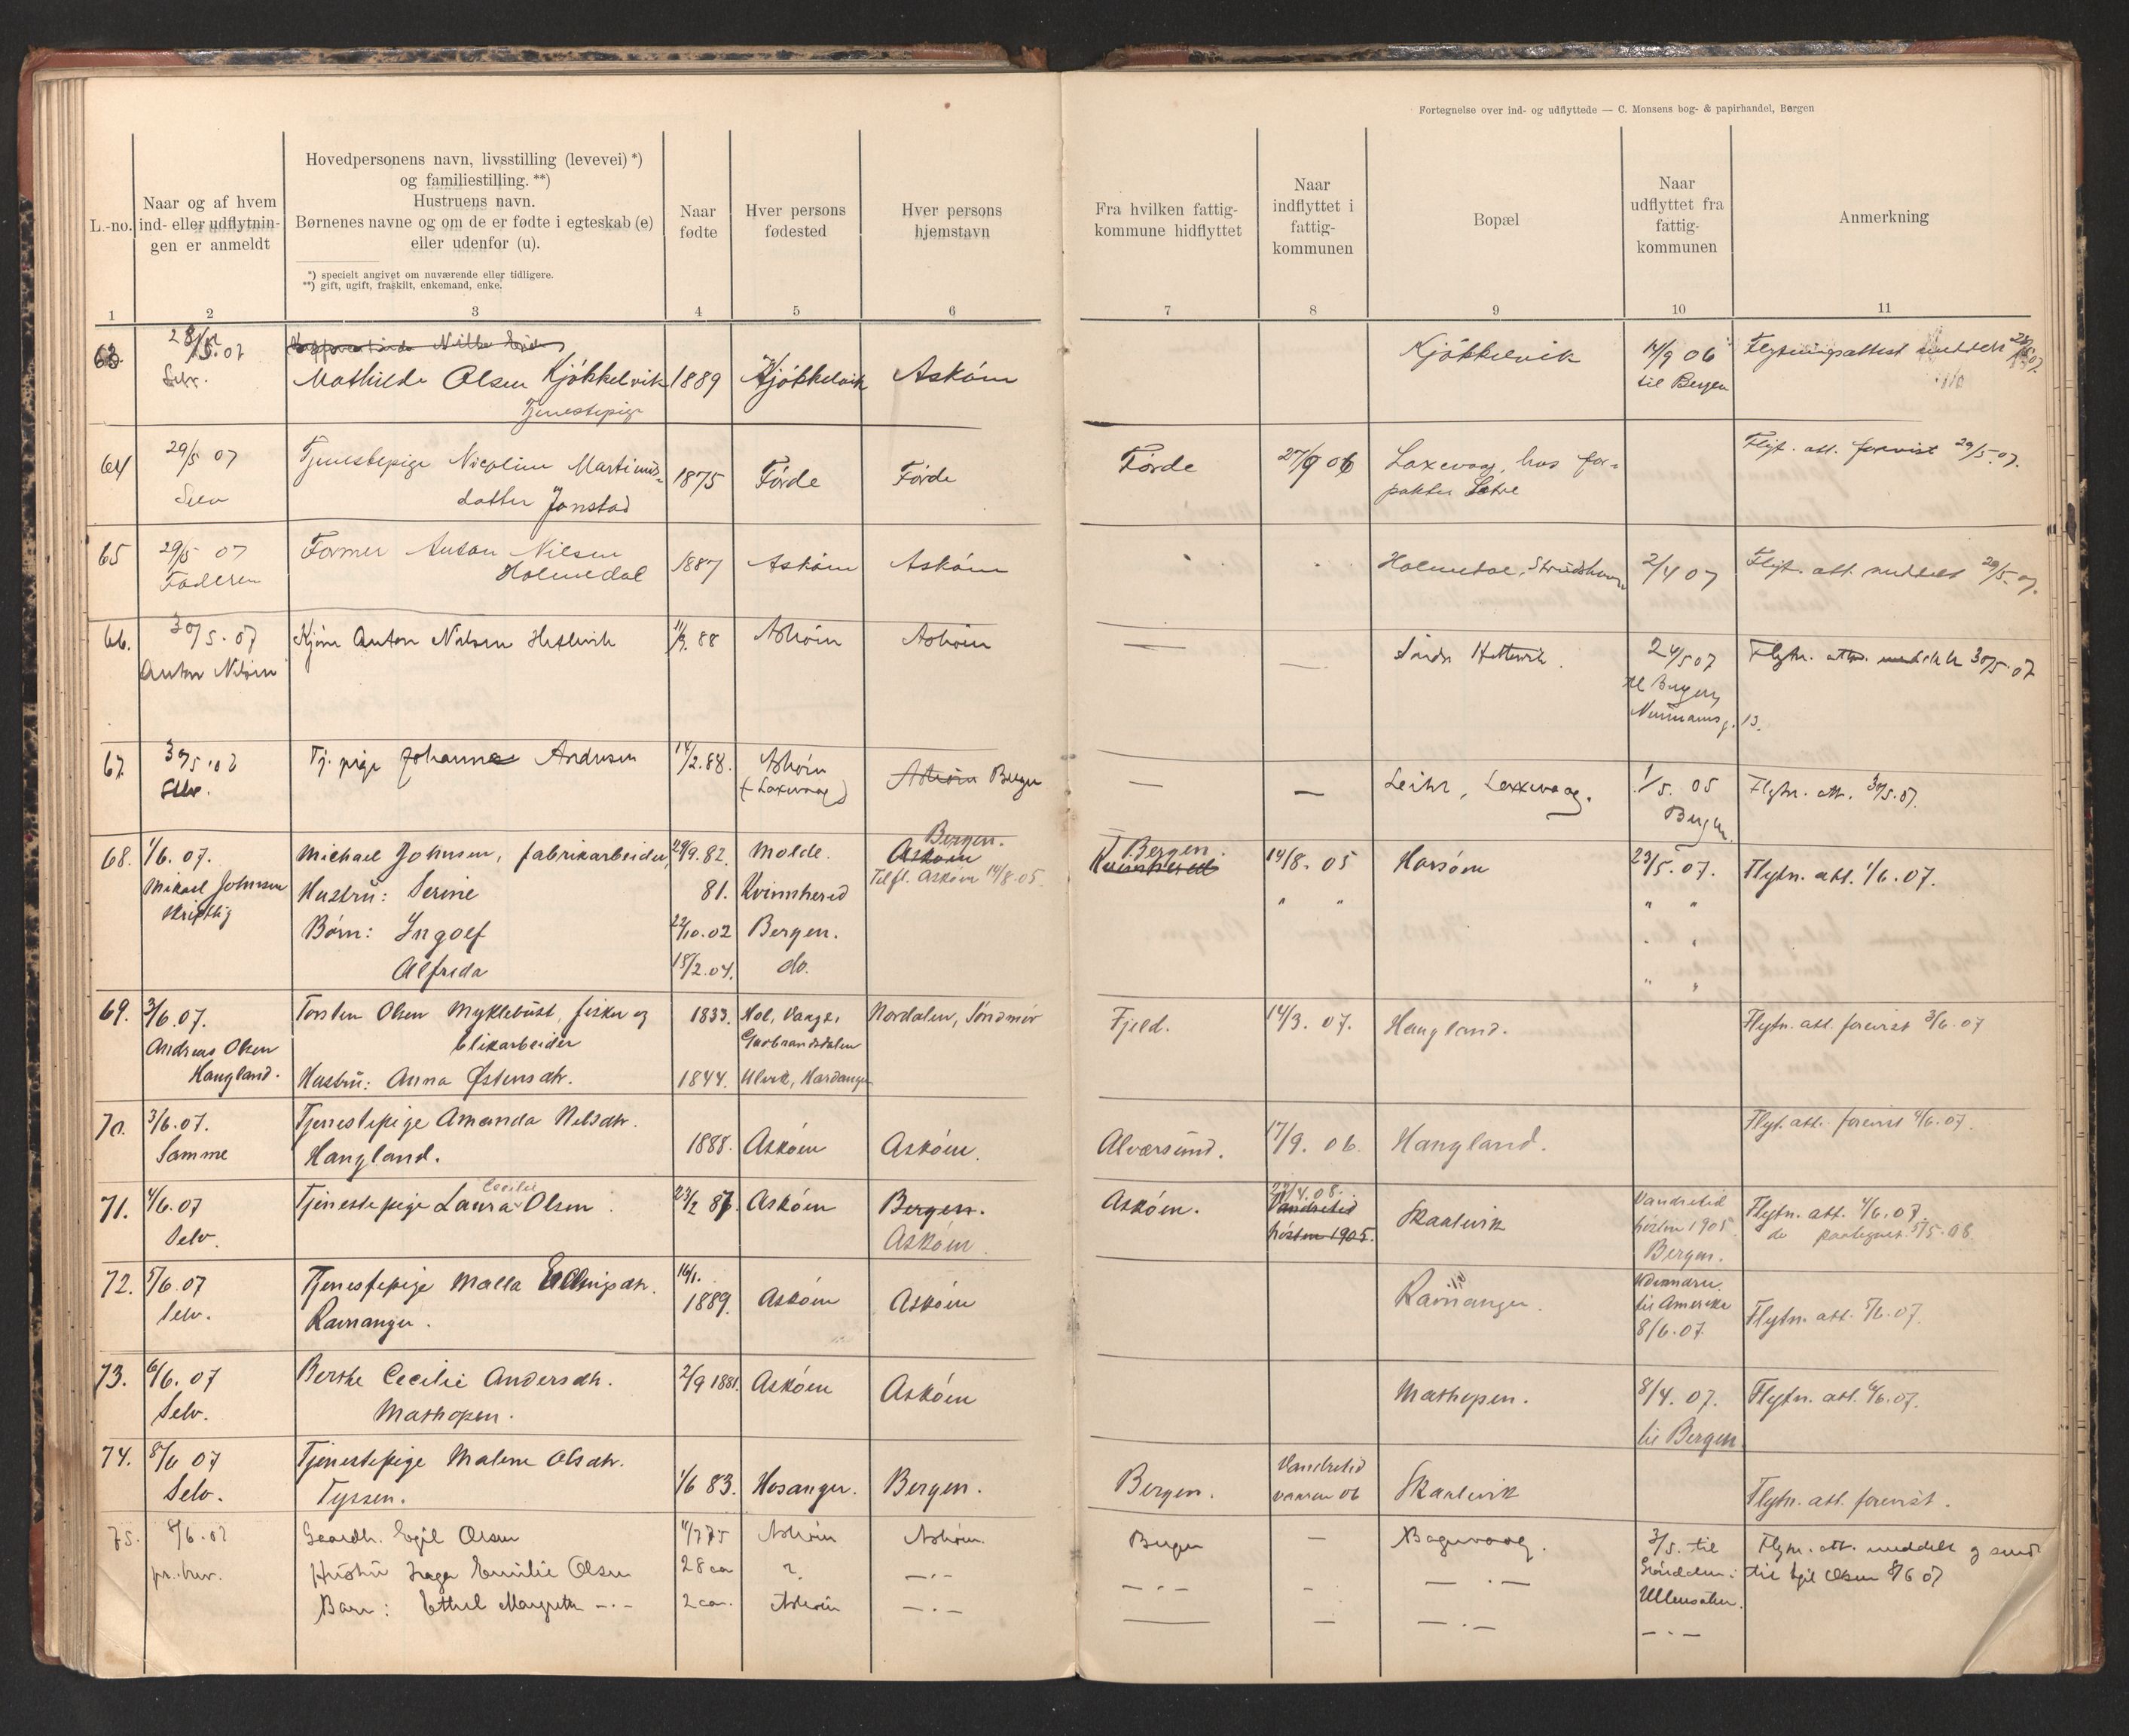 Fortegnelse over ind- og udflyttede — C. Monsens bog- & papirhandel, Bergen
L.-no.
Naar og af hvem
ind- eller udflytnin-
gen er anmeldt
Hovedpersonens navn, livsstilling (levevei) *)
og familiestilling. **)
Hustruens navn.
Børnenes navne og om de er fødte i egteskab (e)
eller udenfor (u).
*) specielt angivet om nuværende eller tidligere.
**) gift, ugift, fraskilt, enkemand, enke.
Naar
fødte
Hver persons
fødested
Hver persons
hjemstavn
Fra hvilken fattig-
kommune hidflyttet
Naar
indflyttet i
fattig-
kommunen
Bopæl
Naar
udflyttet fra
fattig-
kommunen
Anmerkning
1 2 3 4 5 6 7 8 9 10 11
63. 28/5.07 Kjökkelvik 14/9 06 Flytningsattest meddelt 28/5.07.
Selv. Mathilde Olsen Kjökkelvik 1889 Kjökkelvik Asköen til Bergen
Tjenestepige
64 29/5 07 Tjenestepige Nicoline Martinus- 1875 Förde Förde Förde 27/9 06 Laxevaag, hos for- Flyt. att. forevist 29/5.07.
Selv datter Jonstad pakter Sætre
65 29/5 07 Former Anton Nilsen 1887 Asköen Asköen Holmedal, 2/4 07 Flyt. att. meddelt 29/5.07.
Faderen Holmedal
66. 30/5.07 Anton Nilsen Hetlevik 11/9. 88 Asköen Asköen — — Hetlevik. 24/5 07 Flytn. att. meddelt 30/5.07
Anton Nilsen til Bergen
Neumannsg. 13.
67. 30/5.07 Tj. pige Johanna Andresen 14/2.88. Asköen Asköen Bergen — — Leihr, Laxevaag. 1/5. 05 Flytn. att. 30/5.07.
Selv. (Laxevaag) Bergen
68. 1/6.07. Michael Johnsen, fabrikarbeider, 29/9.82. Molde. Bergen. Asköen Bergen. Kvinnherred 14/8. 05 Horsöen 23/5.07. Flytn. att. 1/6.07.
Mikael Johnsen Hustru: Serine 81. Kvinnherred Tilfl. Asköen 14/8.05. " " " "
skriftlig Børn: Ingolf 22/10.02 Bergen. " "
Alfrida 15/2.04. do. " "
69. 3/6.07. Torsten Olsen Myklebust, fisker og 1833. Hol, Vaage, Nordalen, Söndmör Fjeld. 14/3. 07. Haugland. Flytn. att. forevist 3/6.07
Andreas Olsen blikarbeider Gudbrandsdalen
Haugland. Hustru: Anna Østensdtr. 1844. Ulvik, Hardanger
70. 3/6.07. Tjenestepige Amanda Nilsdtr. Flyt. att. forevist 4/6.07.
Samme Haugland. 1888. Asköen Asköen. Alværsund. 17/9. 06. Haugland.
71. 4/6.07 Tjenestepige Laura Cecilie Olsen 23/2 87. Asköen Bergen. Asköen. 22/4.08. Skaalevik Vandretid Flytn. att. 4/6.07.
Selv. Asköen. Vandretid høsten 1905. høsten 1905 do paategnet 5/5.08.
Bergen.
72. 5/6.07 Tjenestepige Malla Ellingsdtr. 16/1. 1889. Asköen Asköen Ramanger. Udvandrer Flytn. att. 5/6.07.
Selv. Ramanger. til Amerika
8/6.07.
73. 6/6.07 Berthe Cecilie Andersdtr. 2/9 1881. Asköen Asköen Mathopen. 8/4. 07. Flytn. att. 6/6.07.
Selv. Mathopen. til Bergen.
74. 8/6 07 Tjenestepige Malene Olsdtr. 1/6 83. Hosanger. Bergen. Bergen. Vandretid Skaalevik Flytn. att. forevist.
Selv. Tyssen. vaaren 06
75. 8/6.07 Gaardbr. Egil Olsen 4/7 75 Asköen Asköen. Bergen — 3/5. til Flytn. att. meddelt og sendt
pr. brev. Hustru Emilie Olsen 28 aar ? —.— —.— - —.— til Egil Olsen 8/6 07
Barn: Ethel Margrethe —.— 2 aar. Asköen —.— — — —.— Ullensaker.
—.—